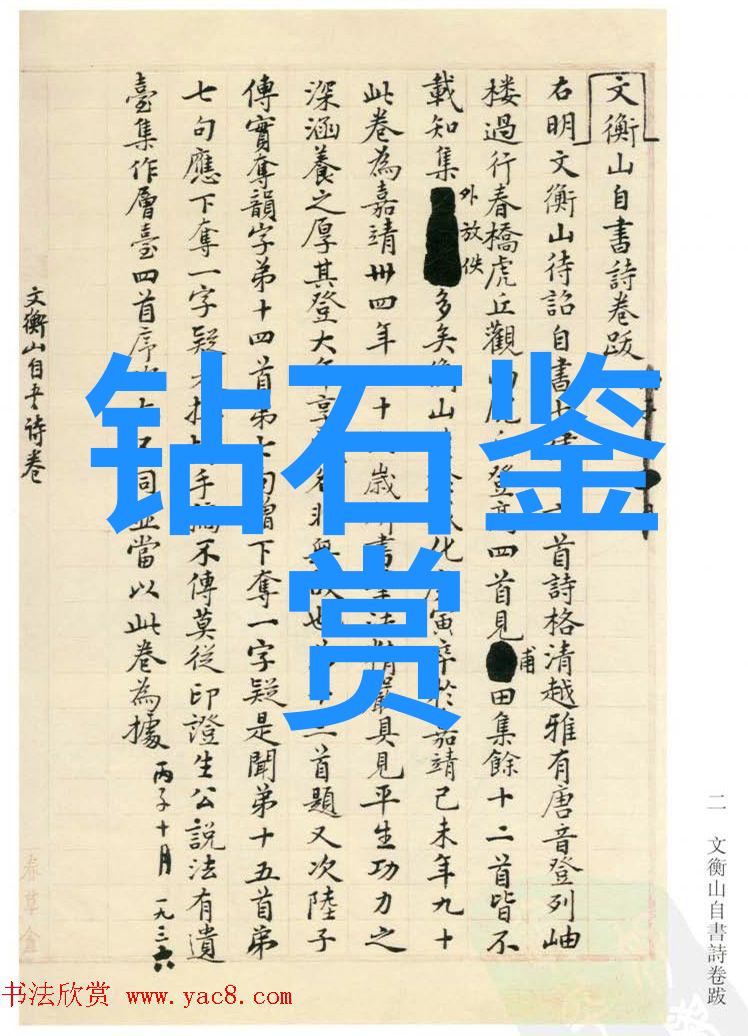 文衡山自書詩卷跋
右明文衡山待詔自書七 首詩格清越雅有唐音登列岫
楼過行春橋虎丘觀 登高四首見甫田集餘十二首皆不
載知集外放佚多矣衡山 化庚寅卒於嘉靖己未年九十
此卷為嘉靖卅四年 十 歲 書 精嚴具見平生功力之
深涵養之厚其登大年享 名非無故也 二首題又次陸子
傳實奪韻字弟十四首弟七句曾下奪一字疑是聞弟十五首弟
七句應下奪一字疑 手 不傳莫從印證生公說法有遺
臺集作層臺四首序 不同並當以此卷為據
丙子十月 一九三六
文衡山自書詩卷
钻石鉴
赏
二 文衡山自書詩卷跋
书法欣赏 www.yac8.com